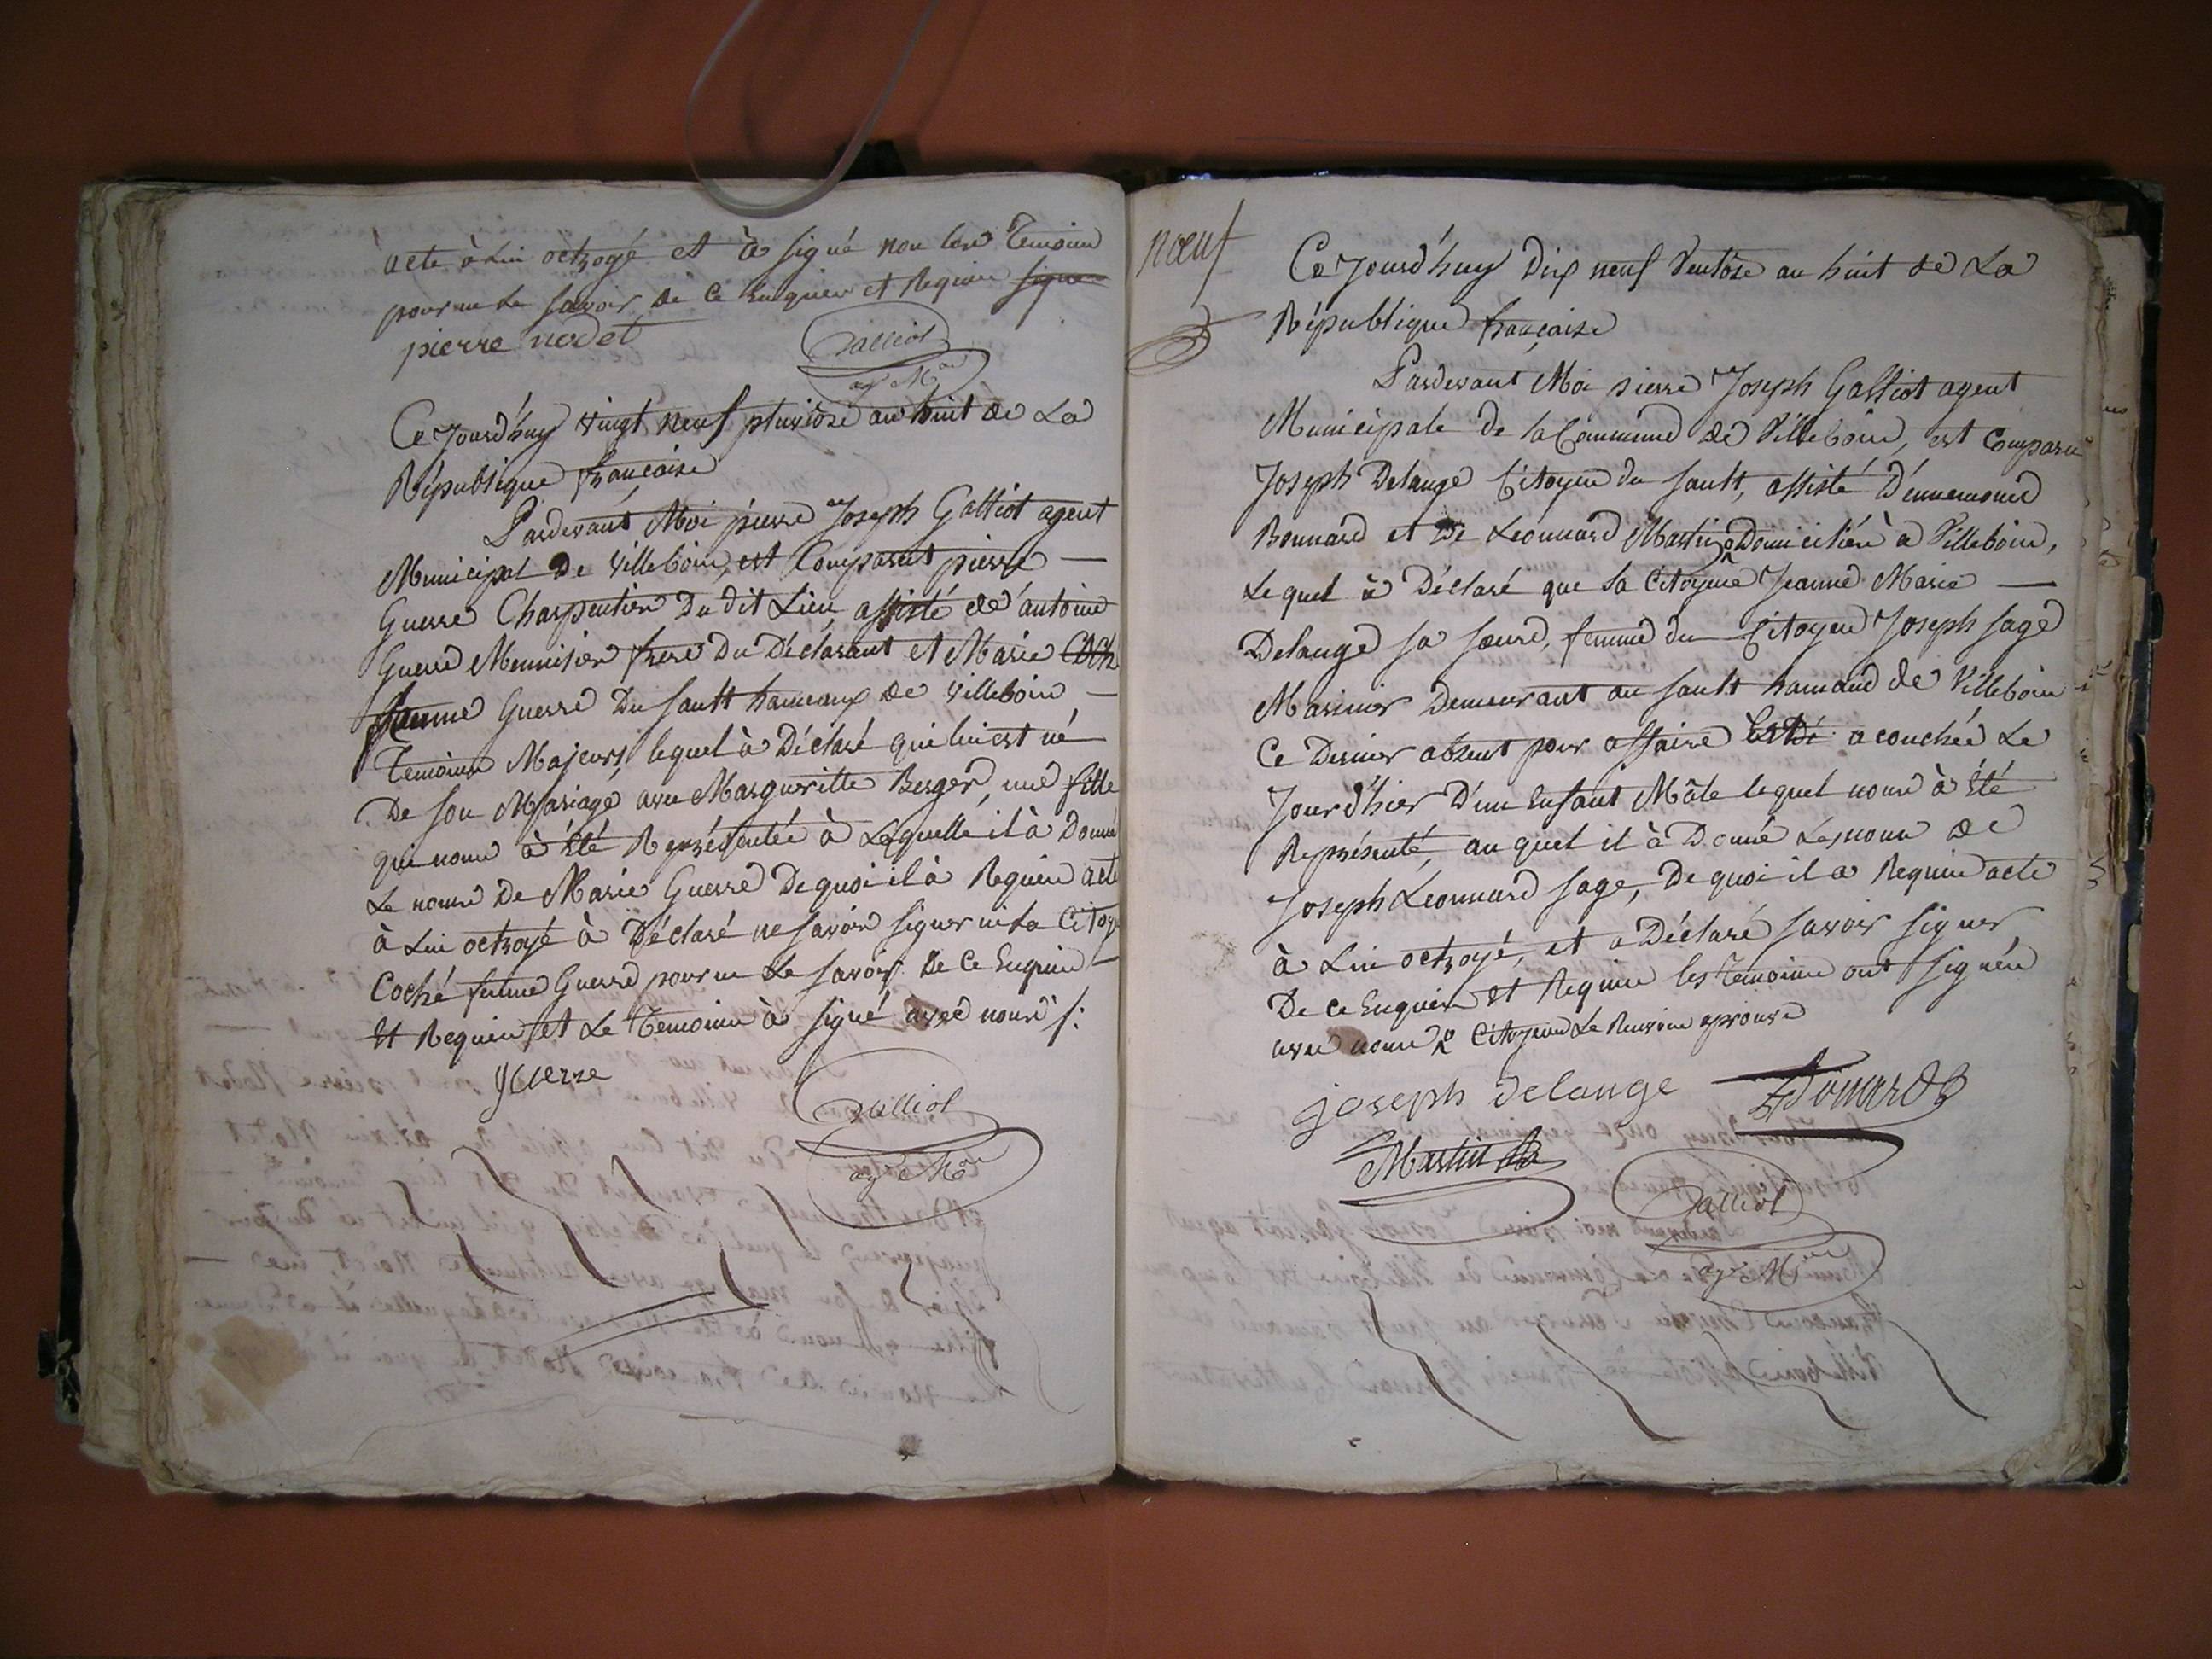 acte à Lui octroyé et à signé non les Temoins
pour ne Le savoir de Ce Enquis et Requis signer
pierre nodet
Galliot
agt Mal
Ce Jourd'huy vingt neuf pluviose an huit de La
République française
Pardevant Moi pierre Joseph Galliot agent
Municipal De Villeboin, est Comparut pierre —
Guerre Charpentier Du dit Lieu, assisté de antoine
Guerre Mennisier frere Du Déclarant et Marie Coch
femme Guerre Du Sault hameaux de Villeboin —
Temoins Majeurs, lequel à Déclaré que lui est né
De son Mariage avec Margueritte Berger, une fille
qui nous à été Représentée à Laquelle il à Donné
Le nom De Marie Guerre De quoi il à Requis acte
à Lui octroyé à Déclaré ne savoir signer ni La Citoy
Coché femme Guerre pour ne Le savoir De Ce Enquis —
Et Requis et Le Temoins à signé avec nous /:
guerre
Galliot
agt Mal
nœuf
Ce Jourd'huy Dix neuf Ventôse an huit de La
République française
Pardevant Moi pierre Joseph Galliot agent
Municipale de la Commune de Villeboin, est Comparu
Joseph Delange Citoyen du Sault, assisté D'ennemond
Bonnard et De Leonnard Martin Domiciliés à Villeboin,
Lequel à Déclaré que la Citoyene Jeanne Marie —
Delange sa sœure, femme du Citoyen Joseph Sage
Marinier Demeurant au Sault hamaud de Villeboin
Ce Dernier absent pour affaire acouchée Le
Jour d'hier D'un Enfant Mâle lequel nous à Été
Représenté, au quel il à Donné Les noms de
Joseph Leonnard Sage, De quoi il a Requis acte
à Lui octroyé, et a Déclaré savoir signer
De ce Enquis et Requis les Temoins ont signés
avec nous Citoyens Le Renvoie aprouvé
joseph delange Bonard
Martin
Galliot
agt Mal